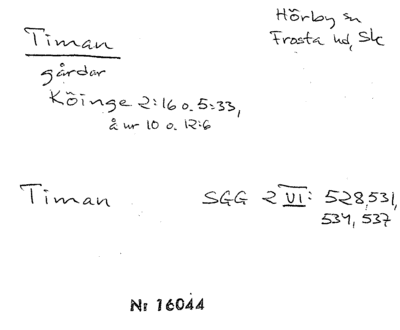 Timan
Hörby sn
Frosta hd, Sk
gårdar
Köinge 2:16 o. 5:33,
å nr 10 o. 12:6
Timan
SGG 2 VI: 528, 531,
534, 537
Nr 16044